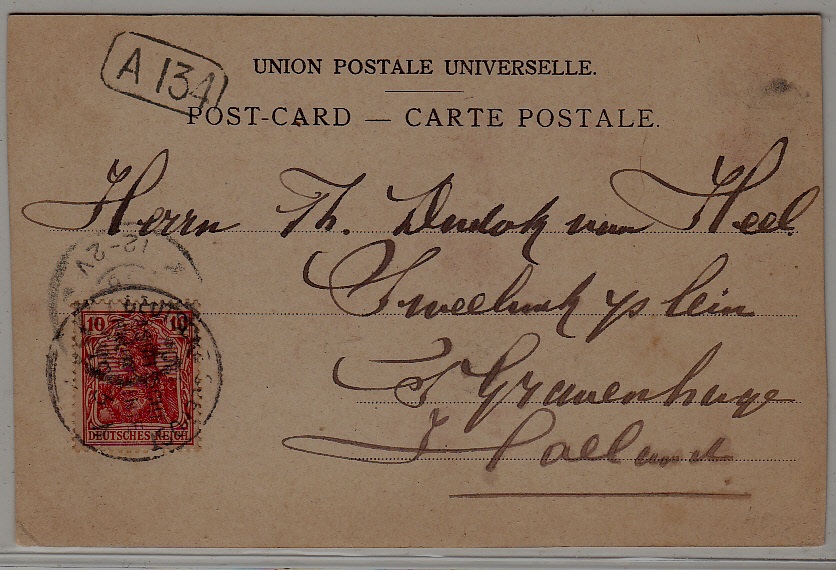 A 134
UNION POSTALE UNIVERSELLE.
POST-CARD — CARTE POSTALE.
Herrn Th. Dudok van Heel
Sweelinckplein
S'Gravenhage
Holland
12-2V
10 10
DEUTSCHES REICH